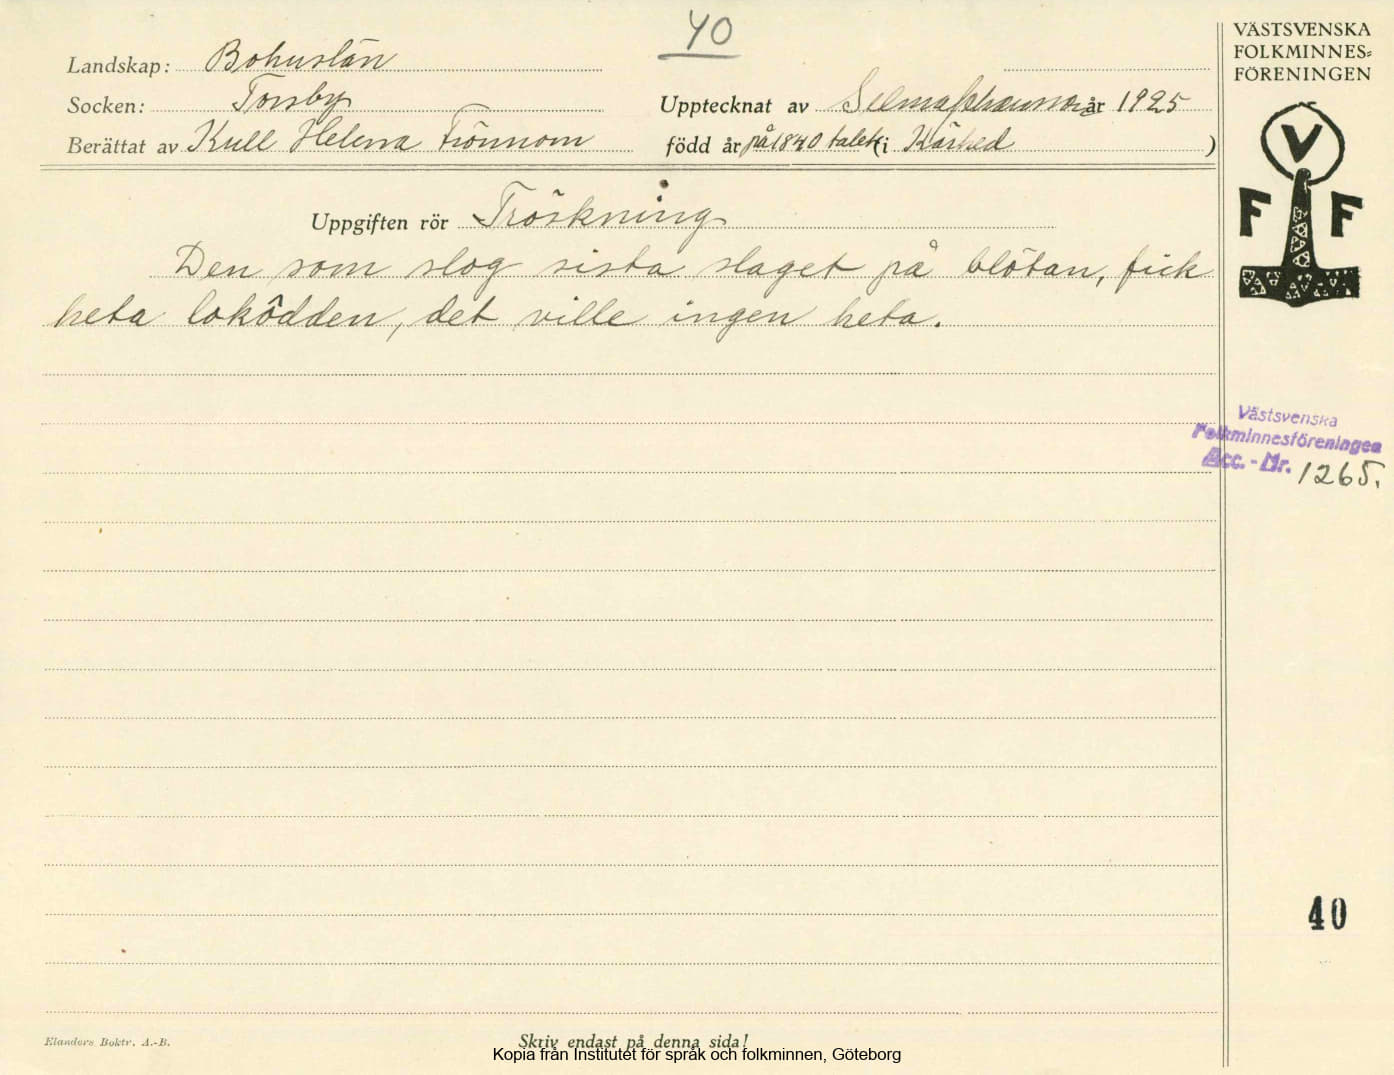 40
Landskap: Bohuslän
Socken: Torsby
Berättat av Kull Helena Trönnom
Upptecknat av Selma Johansson år 1925
född år på 1840 talet (i Kärhed )
Uppgiften rör Tröskning
Den som slog sista slaget på blötan, fick
heta lokôdden, det ville ingen heta.
VÄSTSVENSKA
FOLKMINNES=
FÖRENINGEN
V
F F
Västsvenska
Folkminnesföreningen
Acc. - Nr. 1265.
40
Elanders Boktr. A.-B.
Skriv endast på denna sida!
Kopia från Institutet för språk och folkminnen, Göteborg